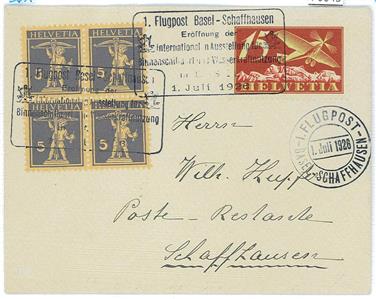 1. Flugpost Basel - Schaffhausen
Eröffnung der
international n Ausstellung für
Binnenschiffahrt u. Wasserkraftnutzung
1. Juli 1926
HELVETIA
HELVETIA
HELVETIA
5
5
1. Flugpost Basel - Schaffhausen
Eröffnung der
Ausstellung für
Binnenschiffahrt
1. Juli 1926
HELVETIA
HELVETIA
5
5
I. FLUGPOST
BASEL-SCHAFFHAUSEN
1. Juli 1926
Herrn
Wilh. Hupp
Poste-Restante
Schaffhausen